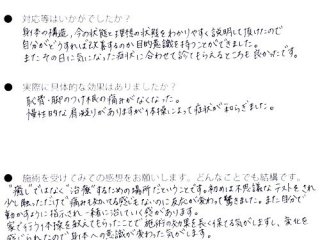 ● 対応等はいかがでしたか？
身体の構造、今の状態と理想の状態をわかりやすく説明して頂けたので
自分がどうすれば改善するのか目的意識を持つことができました。
またその日に気になった症状に合わせて診てもらえるところも良かったです。
● 実際に具体的な効果はありましたか？
恥骨・脚のつけ根の痛みがなくなった。
慢性的な肩凝りがありますが体操によって症状が和らぎました。
● 施術を受けてみての感想をお願いします。どんなことでも結構です。
"癒し"ではなく"治療"するための場所だということです。初めは不思議なテストをされ
少し触っただけで痛みも効いてる感じもないのに反応が変わって驚きました。また自分で
動かすように指示され一緒に治していく感があります。
家で行う体操を教えてもらったことで施術の効果を長く保てる気がしますし、変化を
感じられたので身体への意識が変わった気がします。